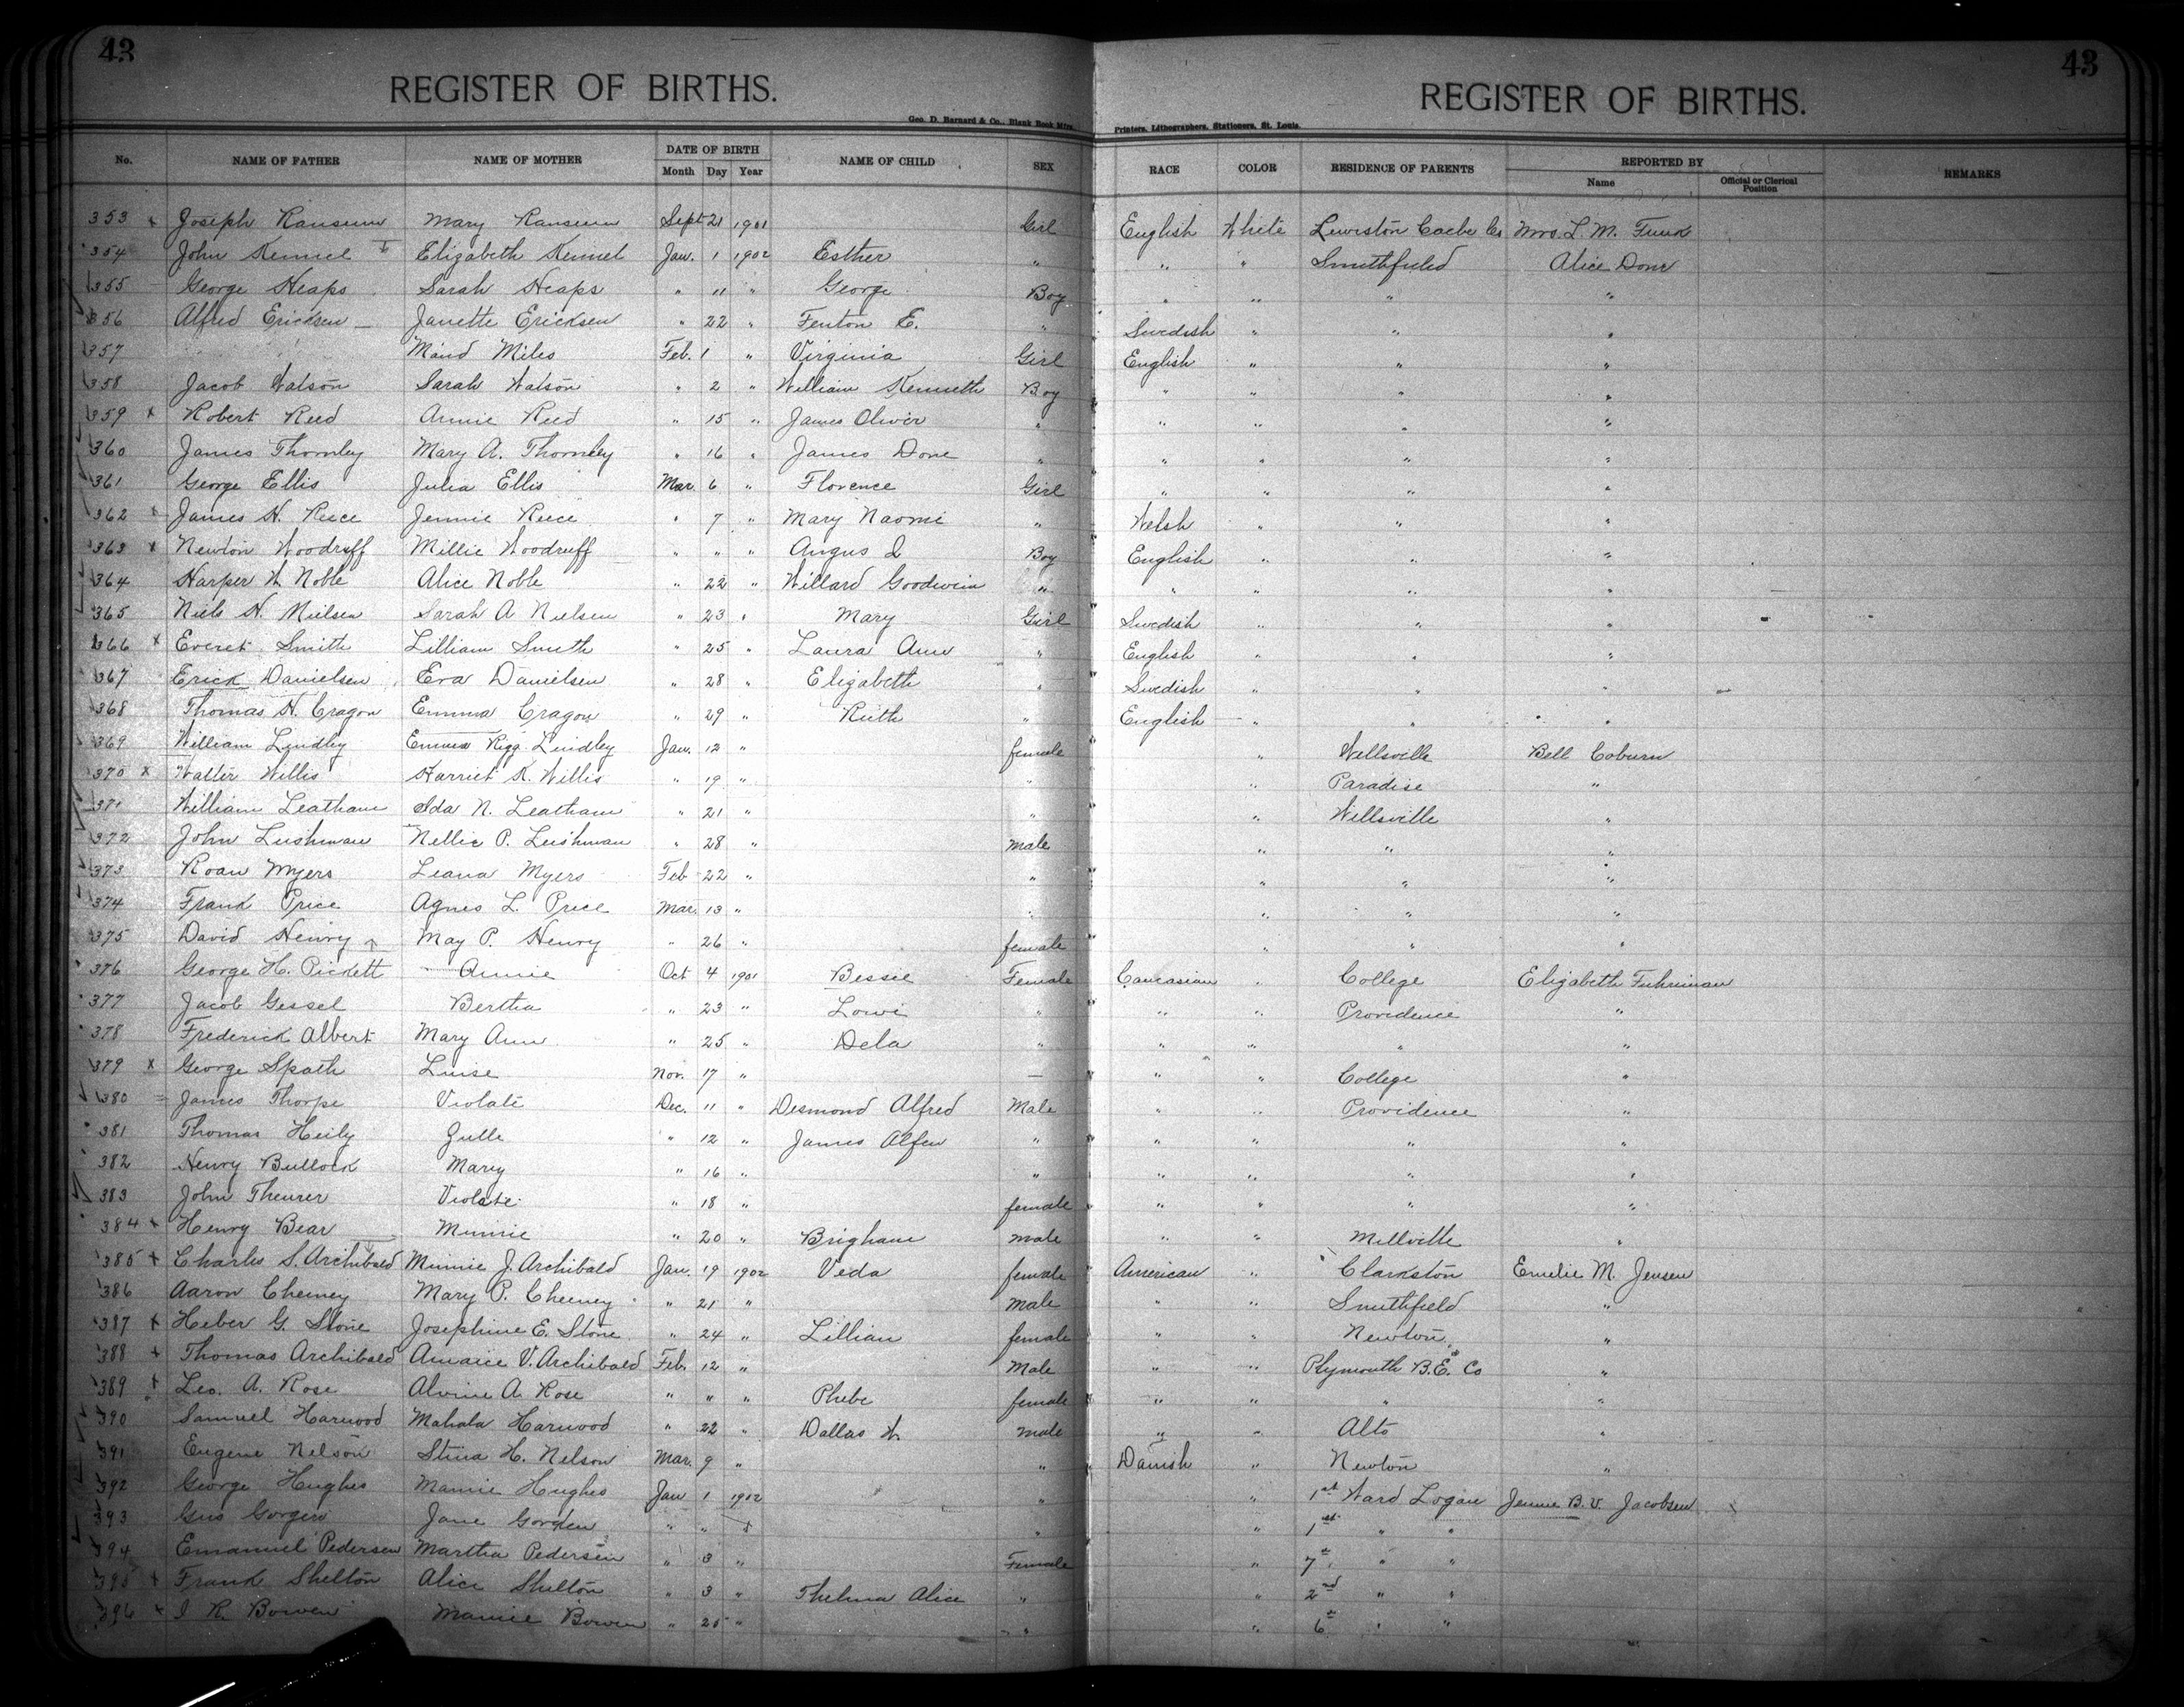 43
43
REGISTER OF BIRTHS.
REGISTER OF BIRTHS.
Geo. D. Barnard & Co., Blank Book Mfrs.,
Printers, Lithographers, Stationers, St. Louis.
No. NAME OF FATHER NAME OF MOTHER DATE OF BIRTH NAME OF CHILD SEX RACE COLOR RESIDENCE OF PARENTS REPORTED BY REMARKS
Month Day Year Name Official or Clerical Position
353 x Joseph Ransum Mary Ransum Sept 21 1901 Girl English White Lewiston Cache Co Mrs. L. M. Funk
354 John Kennel Elizabeth Kennel Jan. 1 1902 Esther " " " Smithfield Alice Done
355 George Heaps Sarah Heaps " 11 " George Boy " " " "
356 Alfred Ericksen Janette Ericksen " 22 " Fenton E. " Swedish " " "
357 Maud Miles Feb. 1 " Virginia Girl English " " "
358 Jacob Watson Sarah Watson " 2 " William Kenneth Boy " " " "
359 x Robert Reed Annie Reed " 15 " James Oliver " " " " "
360 James Thornley Mary A. Thornley " 16 " James Done " " " " "
361 George Ellis Julia Ellis Mar. 6 " Florence Girl " " " "
362 x James H. Reece Jennie Reece " 7 " Mary Naomi " Welsh " " "
363 x Newton Woodruff Millie Woodruff " " " Angus Boy English " " "
364 Harper W Noble Alice Noble " 22 " Willard Goodwin " " " " "
365 Niels H. Nielsen Sarah A Nielsen " 23 " Mary Girl Swedish " " "
366 x Everet Smith Lilliam Smith " 25 " Laura Ann " English " " "
367 Erick Danielsen Eva Danielsen " 28 " Elizabeth " Swedish " " "
368 Thomas H. Cragon Emma Cragon " 29 " Ruth " English " " "
369 William Lindley Emma Rigg Lindley Jan. 12 " female " Wellsville Bell Coburn
370 x Walter Willis Harriet K. Willis " 19 " " " Paradise "
371 William Leatham Ida N. Leatham " 21 " " " Wellsville "
372 John Leishman Nellie P. Leishman " 28 " male " " "
373 Roan Myers Leana Myers Feb 22 " " " " "
374 Frank Price Agnes L. Price Mar. 13 " " " " "
375 David Henry May P. Henry " 26 " female " " "
376 George H. Pickett Annie Oct 4 1901 Bessie Female Caucasian " College Elizabeth Fuhriman
377 Jacob Gessel Bertha " 23 " Lowi " " " Providence "
378 Frederick Albert Mary Ann " 25 " Dela " " " " "
379 x George Spath Luise Nov. 17 " — " " College "
380 James Thorpe Violate Dec. 11 " Desmond Alfred Male " " Providence "
381 Thomas Heily Julle " 12 " James Alfen " " " " "
382 Henry Bullock Mary " 16 " " " " " "
383 John Theurer Violate " 18 " female " " " "
384 x Henry Bear Minnie " 20 " Brigham male " " Millville "
385 x Charles S. Archibald Minnie J. Archibald Jan. 19 1902 Veda female American " Clarkston Emelie M. Jensen
386 Aaron Cheney Mary P. Cheney " 21 " Male " " Smithfield "
387 x Heber G. Stone Josephine E. Stone " 24 " Lillian female " " Newton "
388 x Thomas Archibald V. Archibald Feb. 12 " Male " " Plymouth B.E. Co "
389 x Leo. A. Rose Alvine A. Rose " " " Phebe female " " " "
390 Samuel Harwood Mahala Harwood " 22 " Dallas W. male " " Alto "
391 Eugene Nelson Stina H. Nelson Mar. 9 " " Danish " Newton "
392 George Hughes Mamie Hughes Jan 1 1902 " " 1st Ward Logan Jennie B. V. Jacobsen
393 Gus Jane " " " " 1st " "
394 Emanuel Pedersen Martha Pedersen " 3 " Female " 7th " "
395 x Frank Shelton Alice Shelton " 3 " Thelma Alice " " 2nd " "
396 x I R. Bowen Mamie Bowen " 25 " " " 6th " "